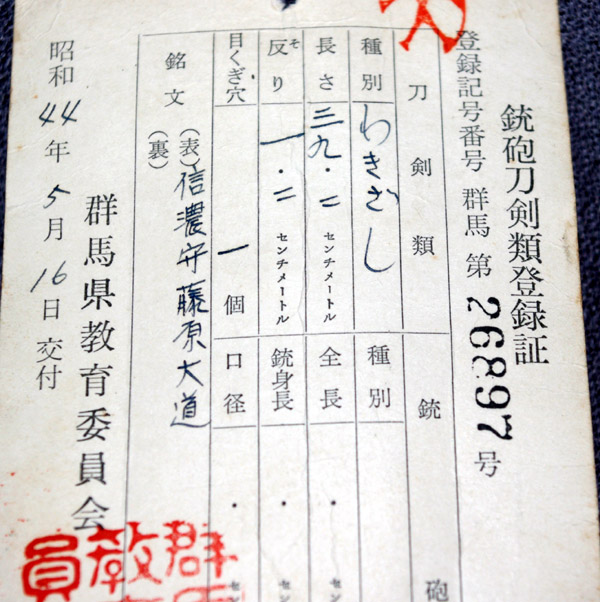 銃砲刀剣類登録証
登録記号番号 群馬 第 26897 号
刀剣類
銃砲
種別 わきざし
種別
長さ 三九・二 センチメートル
全長 ・ セン
反り そ 一・二 センチメートル
銃身長 ・ セン
目くぎ穴 一個
口径 ・ セ
銘文 (表) 信濃守藤原大道
(裏)
群馬県教育委員会
昭和44年5月16日交付
刀
群
教
員